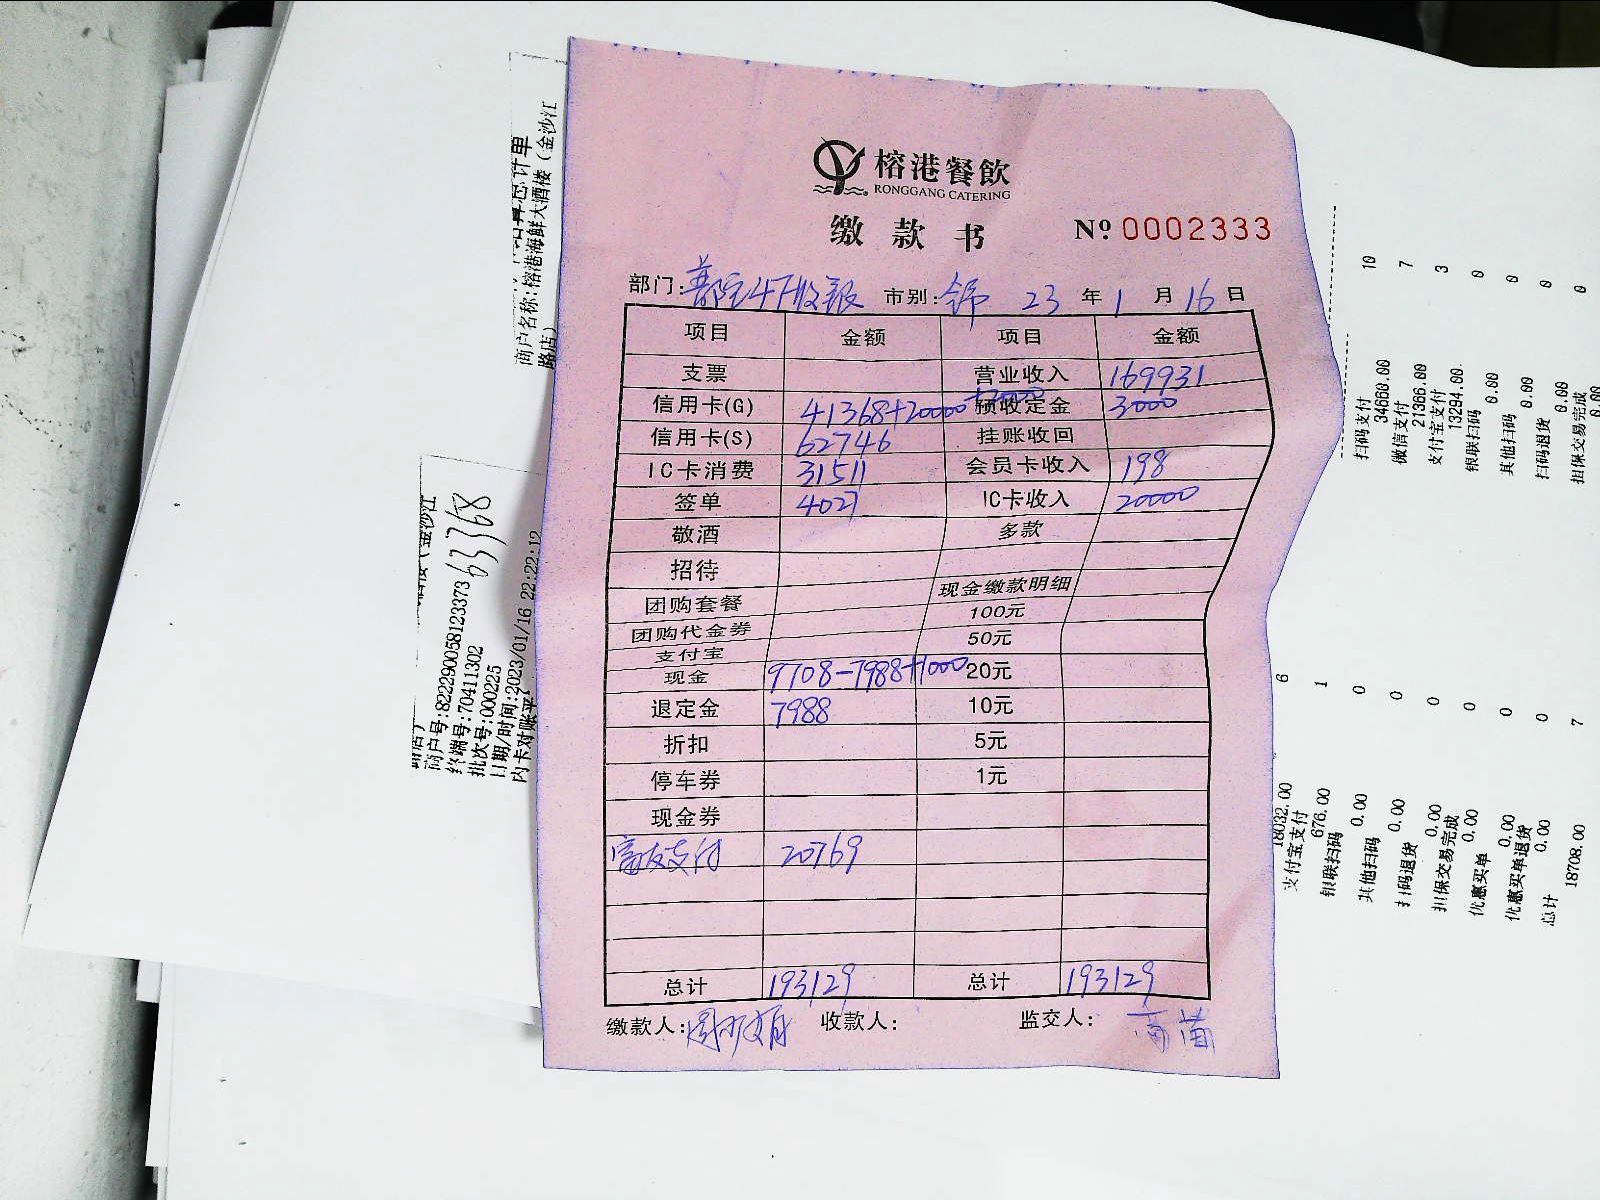 榕港餐飲
RONGGANG CATERING
缴款书 Nº 0002333
部门: 市别: 23 年 1 月 16 日
项目 金额 项目 金额
支票 营业收入 169931
信用卡(G) 41368+20000+2000 预收定金 3000
信用卡(S) 62746 挂账收回
IC卡消费 31511 会员卡收入 198
签单 4027 IC卡收入 20000
敬酒 多款
招待
现金缴款明细
团购套餐 100元
团购代金券 50元
支付宝
现金 9708-7988+1000 20元
退定金 7988 10元
折扣 5元
停车券 1元
现金券
富友支付 20769
总计 193129 总计 193129
缴款人: 收款人: 监交人:
商户名称:榕港海鲜大酒楼(金沙江
路店)
63768
商户号:822290058123373
终端号:70411302
批次号:000225
日期/时间:2023/01/16 22:22:12
内卡对账平
扫码支付 10
34660.00
微信支付 7
21366.00
支付宝支付 3
13294.00
银联扫码 0
0.00
其他扫码 0
0.00
扫码退货 0
0.00
担保交易完成 0
0.00
6
18032.00
支付宝支付 1
676.00
银联扫码 0
0.00
其他扫码 0
0.00
扫码退货 0
0.00
担保交易完成 0
0.00
优惠买单 0
0.00
优惠买单退货 0
0.00
总计 7
18708.00